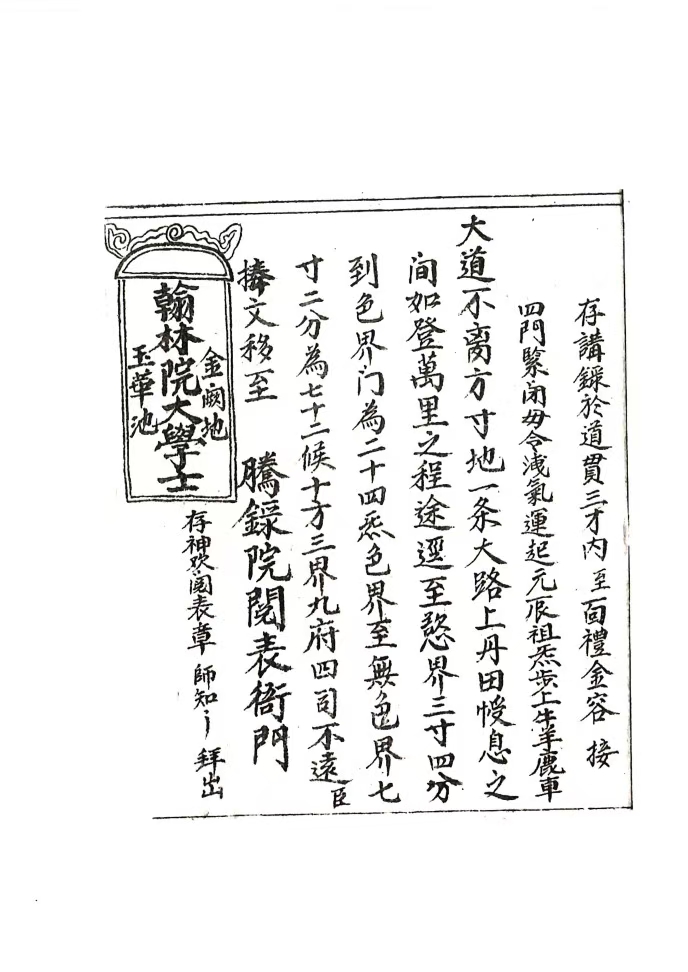 存講錄於道貫三才內至面禮金容 接
四門緊闭毋令洩氣運起元辰祖炁歩上牛羊鹿車
大道不离方寸地一条大路上丹田㡪息之
间如登萬里之程途逕至慾界三寸四分
到色界门為二十四炁色界至無色界七
寸二分為七十二候十方三界九府四司不遠臣
捧文移至 騰錄院閲表衙門
翰林院大學士
金阙地
玉華池
存神欢阅表章 師知〻 拜出